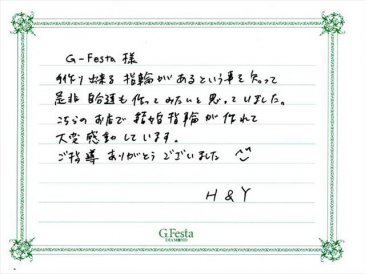 G-Festa 様
手作り出来る指輪があるという事を知って
是非自分達も作ってみたいと思っていました。
こちらのお店で結婚指輪が作れて
大変感動しています。
ご指導ありがとうございました
H & Y
G.Festa
DIAMOND